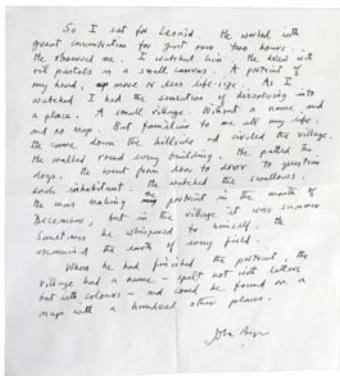 So I sat for Leonid. He worked with
great concentration for just over two hours.
He observed me. I watched him. He drew with
oil pastels on a small canvas. A portrait of
my head, more or less life-size. As I
watched I had the sensation of dissolving into
a place. A small village. Without a name and
and no map. But familiar to me all my life.
He came down the hillside and circled the village.
He walked round every building. He patted the
dogs. He went from door to door to question
each inhabitant. He watched the swallows.
He was making my portrait in the month of
December, but in the village it was summer.
Sometimes he whispered to himself. He
examined the earth of every field.
When he had finished the portrait, the
village had a name – spelt not with letters
but with colours – and could be found on a
map with a hundred other places.
John Berger